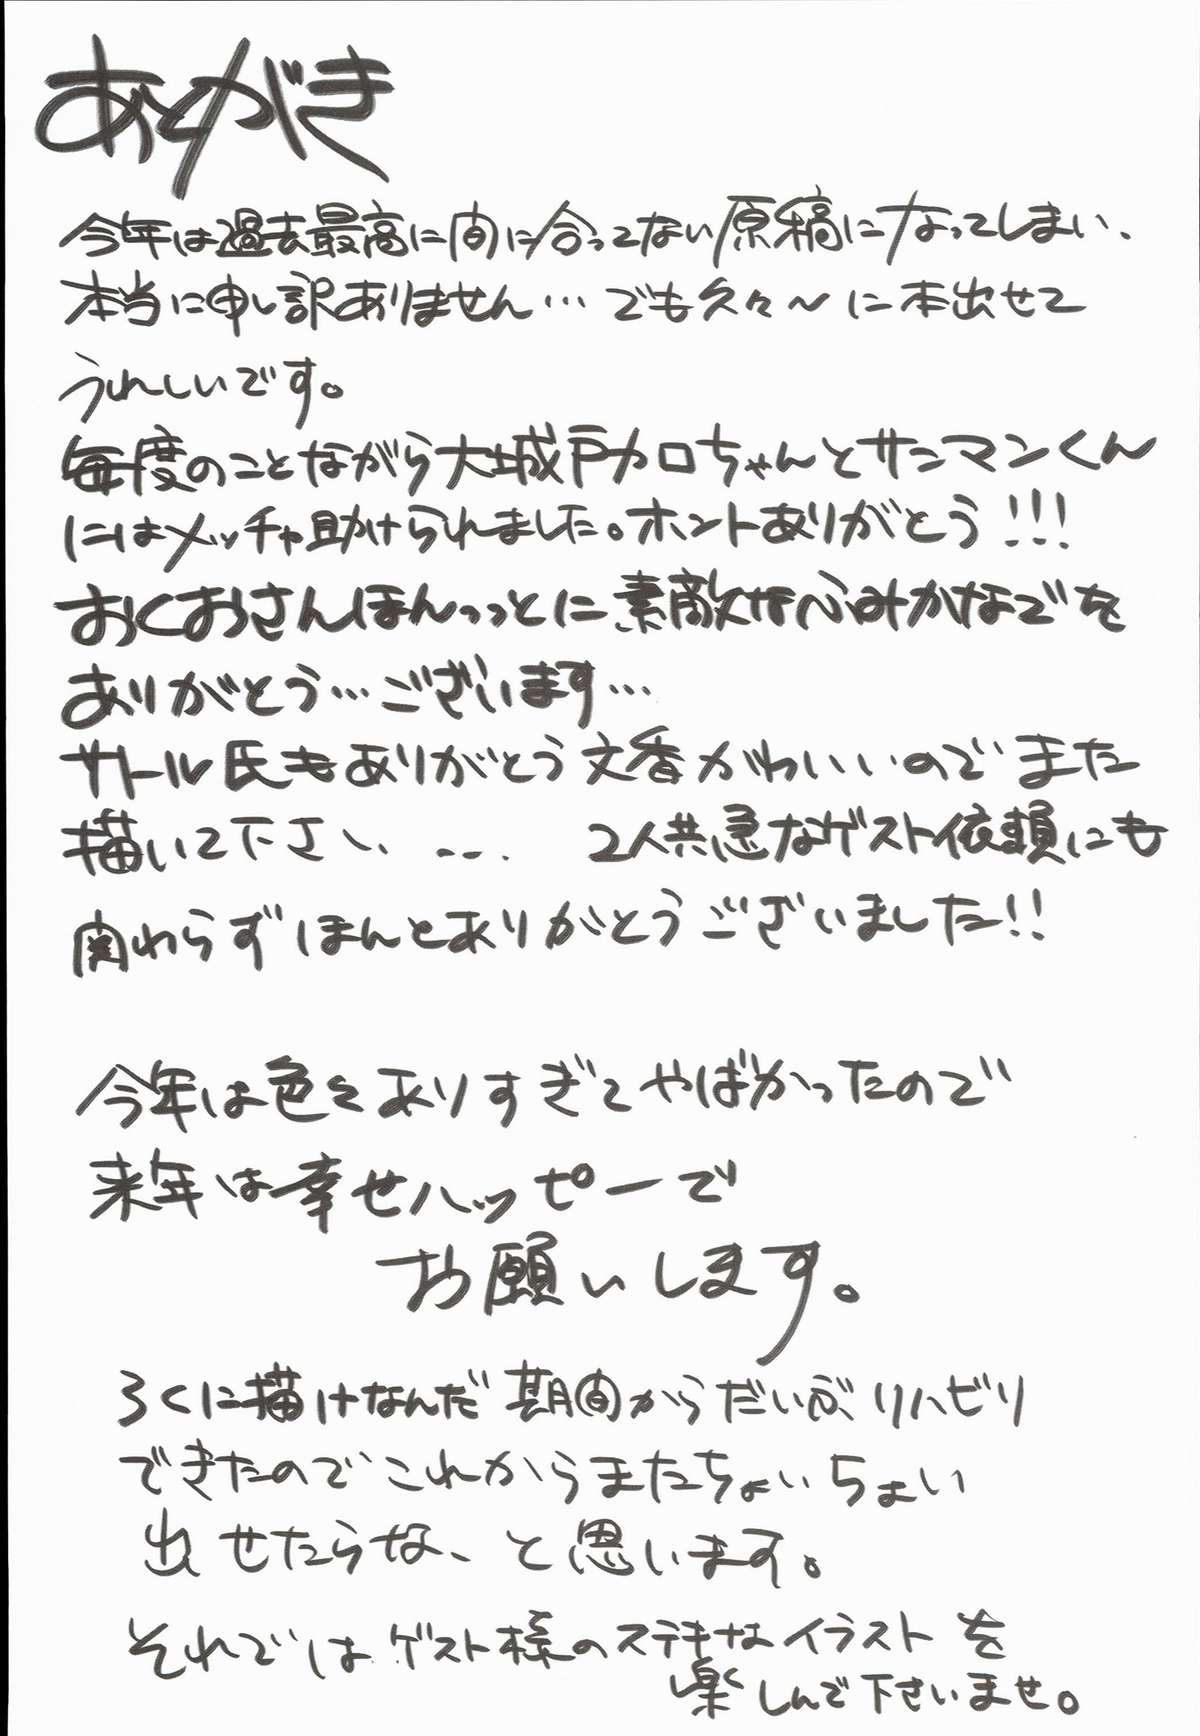 あとがき
今年は過去最高に間に合ってない原稿になってしまい、
本当に申し訳ありません…でも久々〜に本出せて
うれしいです。
毎度のことながら大城戸カロちゃんとサンマンくん
にはメッチャ助けられました。ホントありがとう!!!
おくおさんほんっっとに素敵なふみかなでを
ありがとう…ございます…
サトール氏もありがとう文香かわいいのでまた
描いて下さい、... 2人共急なゲスト依頼にも
関わらずほんとありがとうございました!!
今年は色々ありすぎてやばかったので
来年は幸せハッピーで
お願いします。
ろくに描けなんだ期間からだいぶリハビリ
できたのでこれからまたちょいちょい
出せたらな、と思います。
それではゲスト様のステキなイラストを
楽しんで下さいませ。